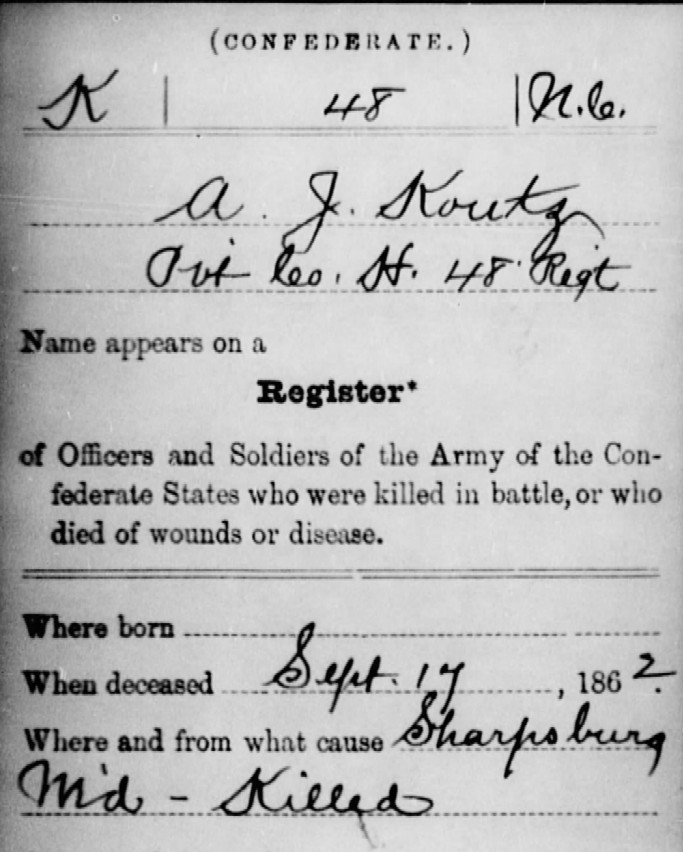 (CONFEDERATE.)
K | 48 | N.C.
A. J. Koutz
Pvt Co. H. 48 Regt
Name appears on a
Register*
of Officers and Soldiers of the Army of the Con-
federate States who were killed in battle, or who
died of wounds or disease.
Where born
When deceased Sept. 17, 1862.
Where and from what cause Sharpsburg
Md - Killed